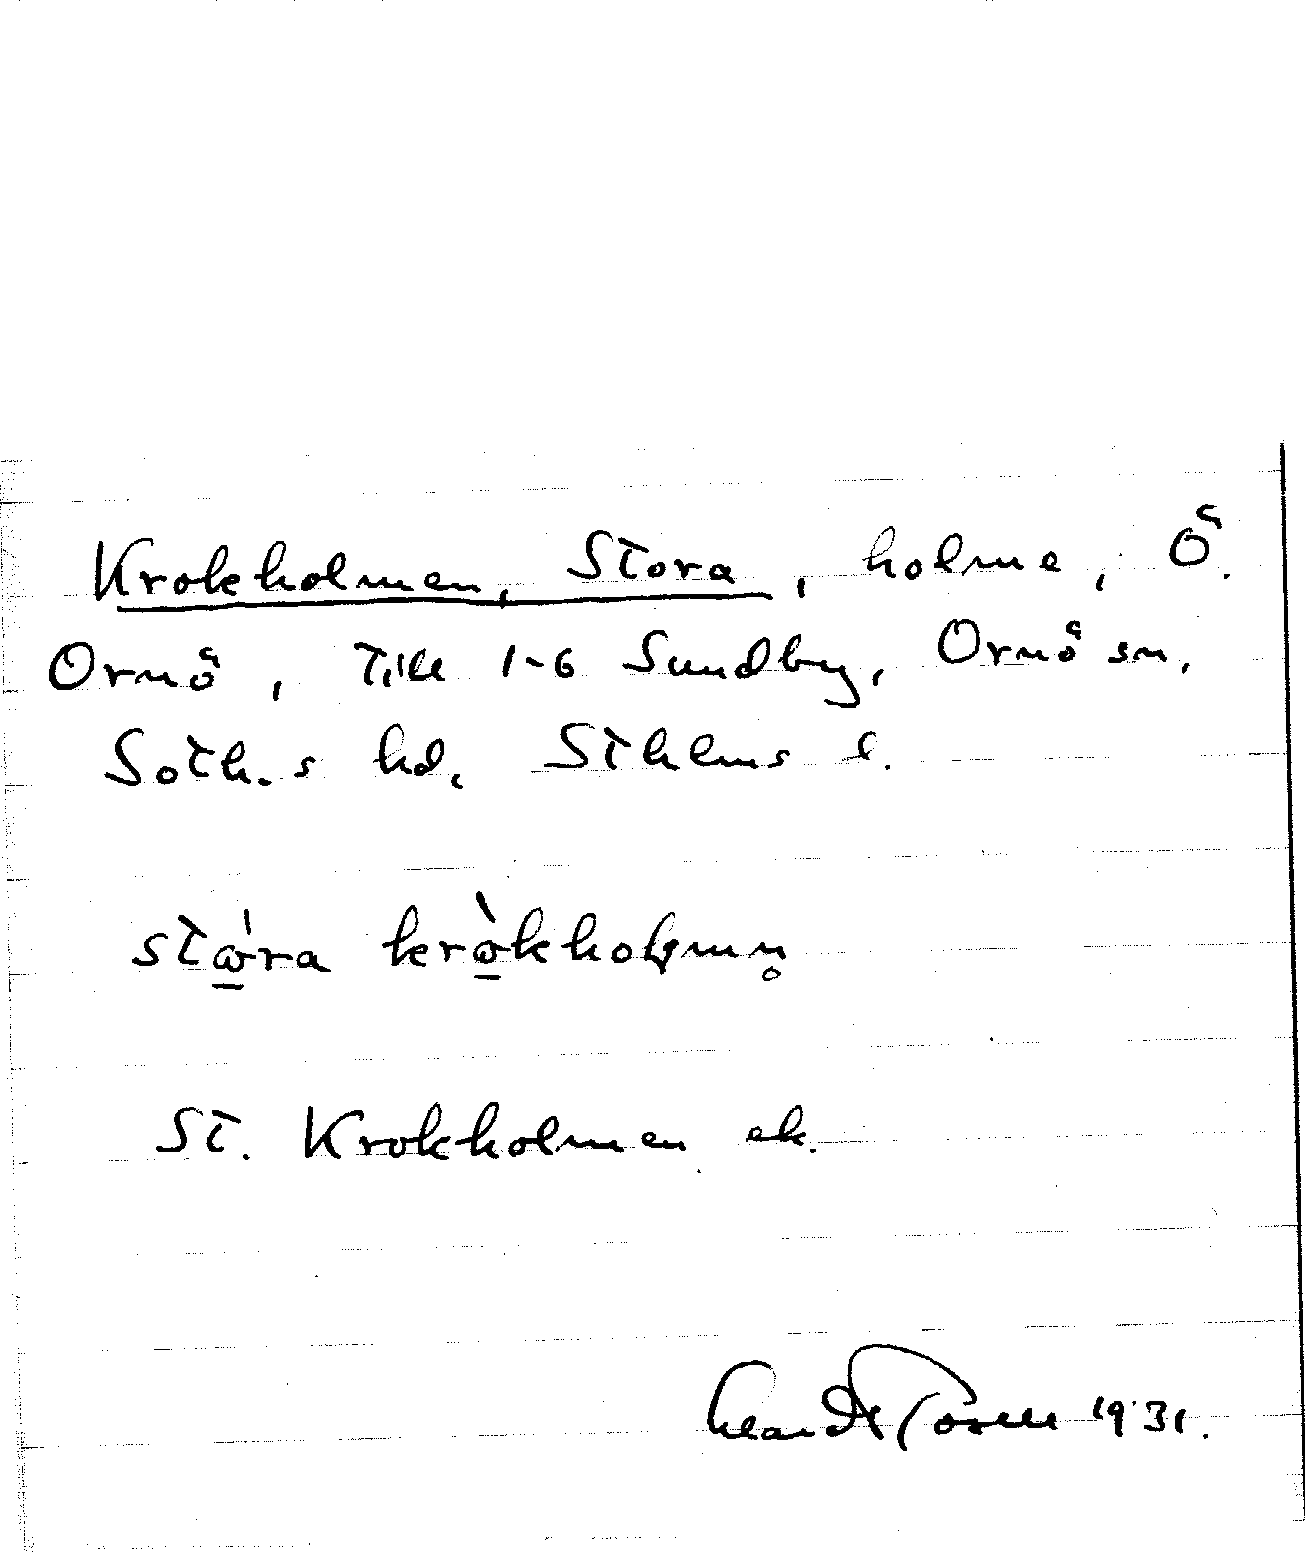 Krokholmen, Stora, holme, Ö.
Ornö, till 1-6 Sundby, Ornö sn,
Soth.s hd, Sthlms l.
stώ̲ra krò̲khoḷmn̥
St. Krokholmen ek.
1931.